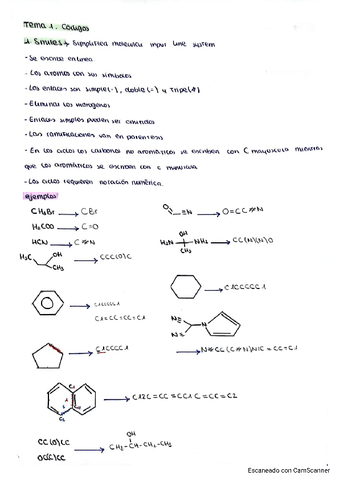 Tema 1. Códigos
1. Smiles → Simplified molecular input line system
- Se escribe en línea
- Los átomos con sus símbolos
- Los enlaces son simple (-), doble (=) y triple (#)
- Eliminar los hidrógenos
- Enlaces simples pueden ser omitidos
- Las ramificaciones van en paréntesis
- En los ciclos los carbonos no aromáticos se escriben con C mayúscula mientras
que los aromáticos se escriben con c minúscula
- Los ciclos requieren notación numérica.
ejemplos
CH3Br → CBr
O=C≡N → O=CC#N
H2COO → C=O
HCN → C#N
H2N NH2 OH CH3 → CC(N)(N)O
H3C OH CH3 → CCC(O)C
C1CCCCC1
c1ccccc1
C1=CC=CC=C1
C1CCCC1
N≡ N≡ N
C12C=CC=CC1C=CC=C2
CC(O)CC
OC(C)CC
OH
CH3-CH-CH2-CH3
Escaneado con CamScanner